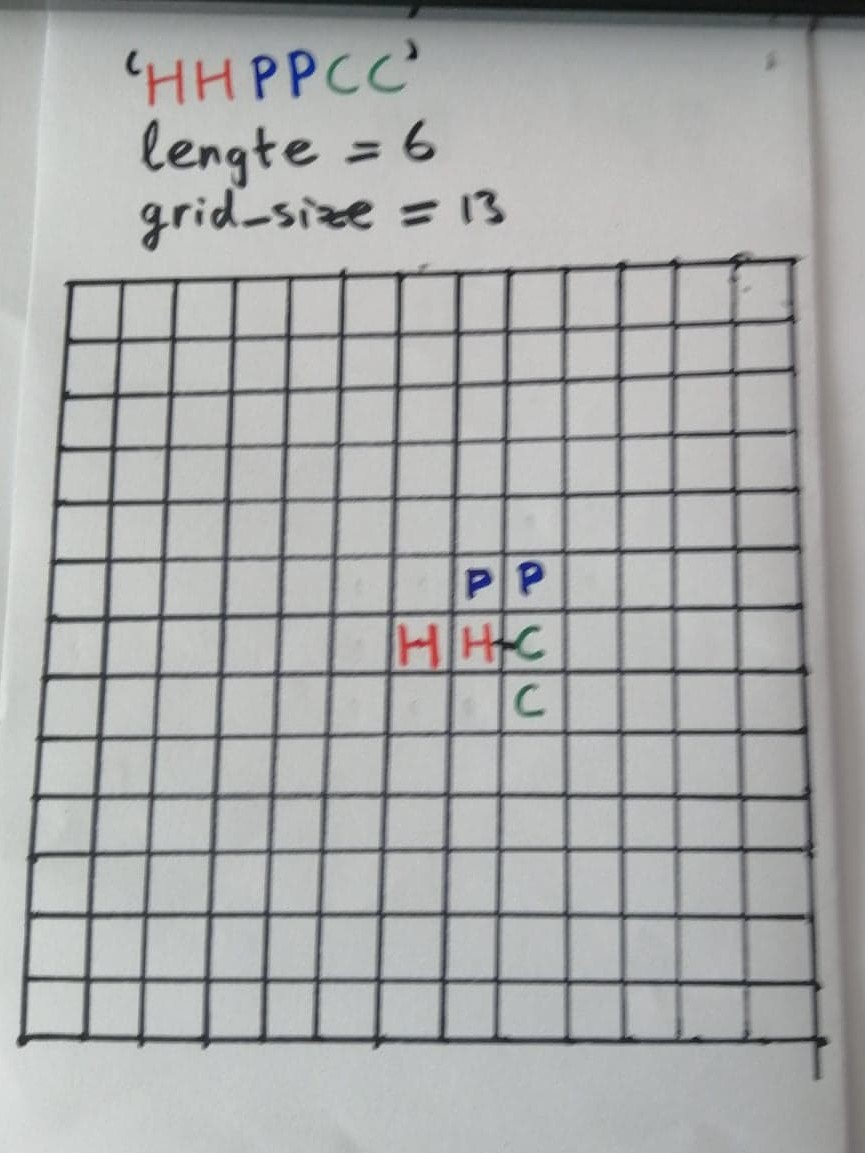 'HHPPCC'
lengte = 6
grid_size = 13
P P
H H-C
C